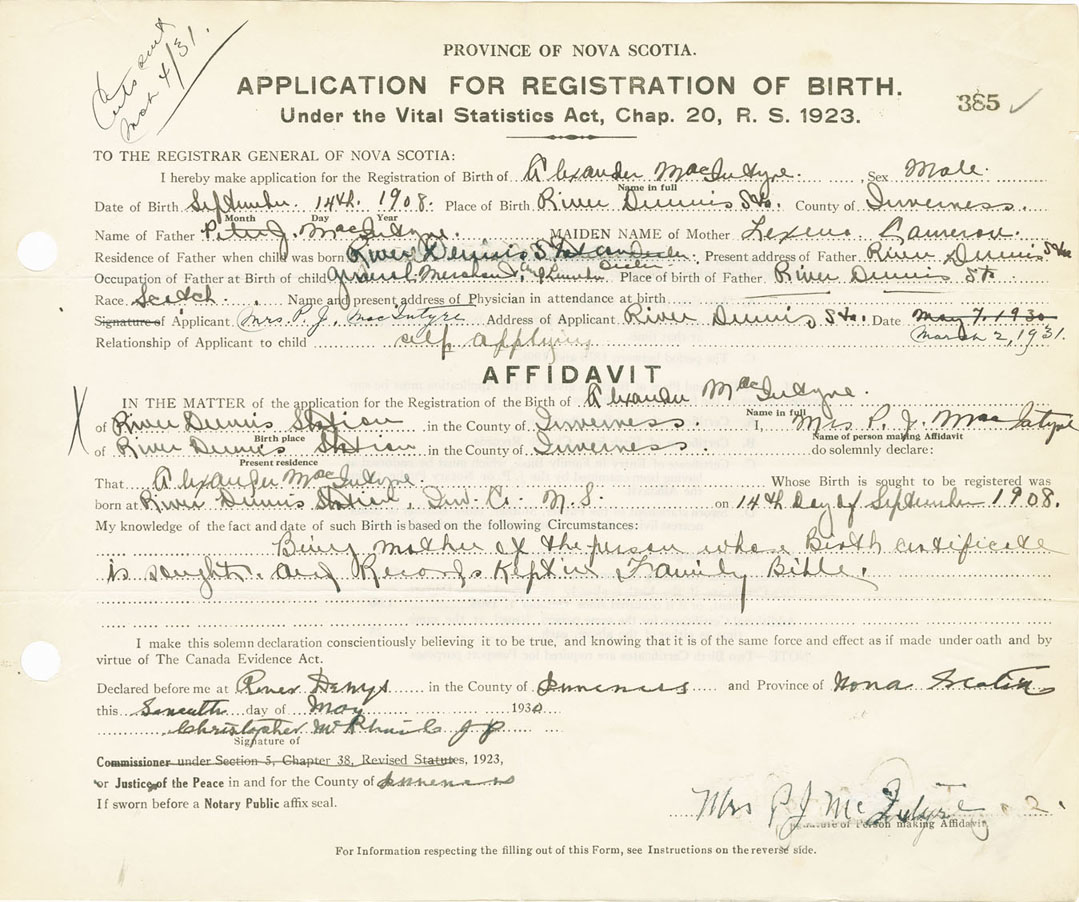 Certs sent
Mar 4/31.
PROVINCE OF NOVA SCOTIA.
APPLICATION FOR REGISTRATION OF BIRTH.
385
Under the Vital Statistics Act, Chap. 20, R. S. 1923.
TO THE REGISTRAR GENERAL OF NOVA SCOTIA:
I hereby make application for the Registration of Birth of Alexander MacIntyre. , Sex Male.
Name in full
Date of Birth September. 14th. 1908. Place of Birth River Dennis Sta. County of Inverness.
Month Day Year
Name of Father Peter J. MacIntyre. MAIDEN NAME of Mother Lexena Cameron.
Residence of Father when child was born River Dennis Sta. ; Present address of Father River Dennis Sta
Occupation of Father at Birth of child General Merchant, and Lumber Dealer Place of birth of Father River Dennis Sta
Race Scotch. Name and present address of Physician in attendance at birth
Signature of Applicant Mrs. P. J. MacIntyre Address of Applicant River Dennis, Sta. Date May 7. 1930
March 2, 1931.
Relationship of Applicant to child self applying
AFFIDAVIT
IN THE MATTER of the application for the Registration of the Birth of Alexander MacIntyre.
Name in full
X of River Dennis Station in the County of Inverness. I, Mrs P. J. MacIntyre
Birth place Name of person making Affidavit
of River Dennis Station in the County of Inverness. do solemnly declare:
Present residence
That Alexander MacIntyre. Whose Birth is sought to be registered was
born at River Dennis Station, Inv. Co. N. S. on 14th day of September 1908.
My knowledge of the fact and date of such Birth is based on the following Circumstances:
Being mother of the person whose Birth certificate
is sought. and Records kept in Family Bible.
I make this solemn declaration conscientiously believing it to be true, and knowing that it is of the same force and effect as if made under oath and by
virtue of The Canada Evidence Act.
Declared before me at River Denys in the County of Inverness and Province of Nova Scotia
this Seventh day of May 1930
Christopher McPhail J P
Signature of
Commissioner under Section 5, Chapter 38, Revised Statutes, 1923,
or Justice of the Peace in and for the County of Inverness
If sworn before a Notary Public affix seal.
Mrs P J McIntyre
Signature of Person making Affidavit
For Information respecting the filling out of this Form, see Instructions on the reverse side.